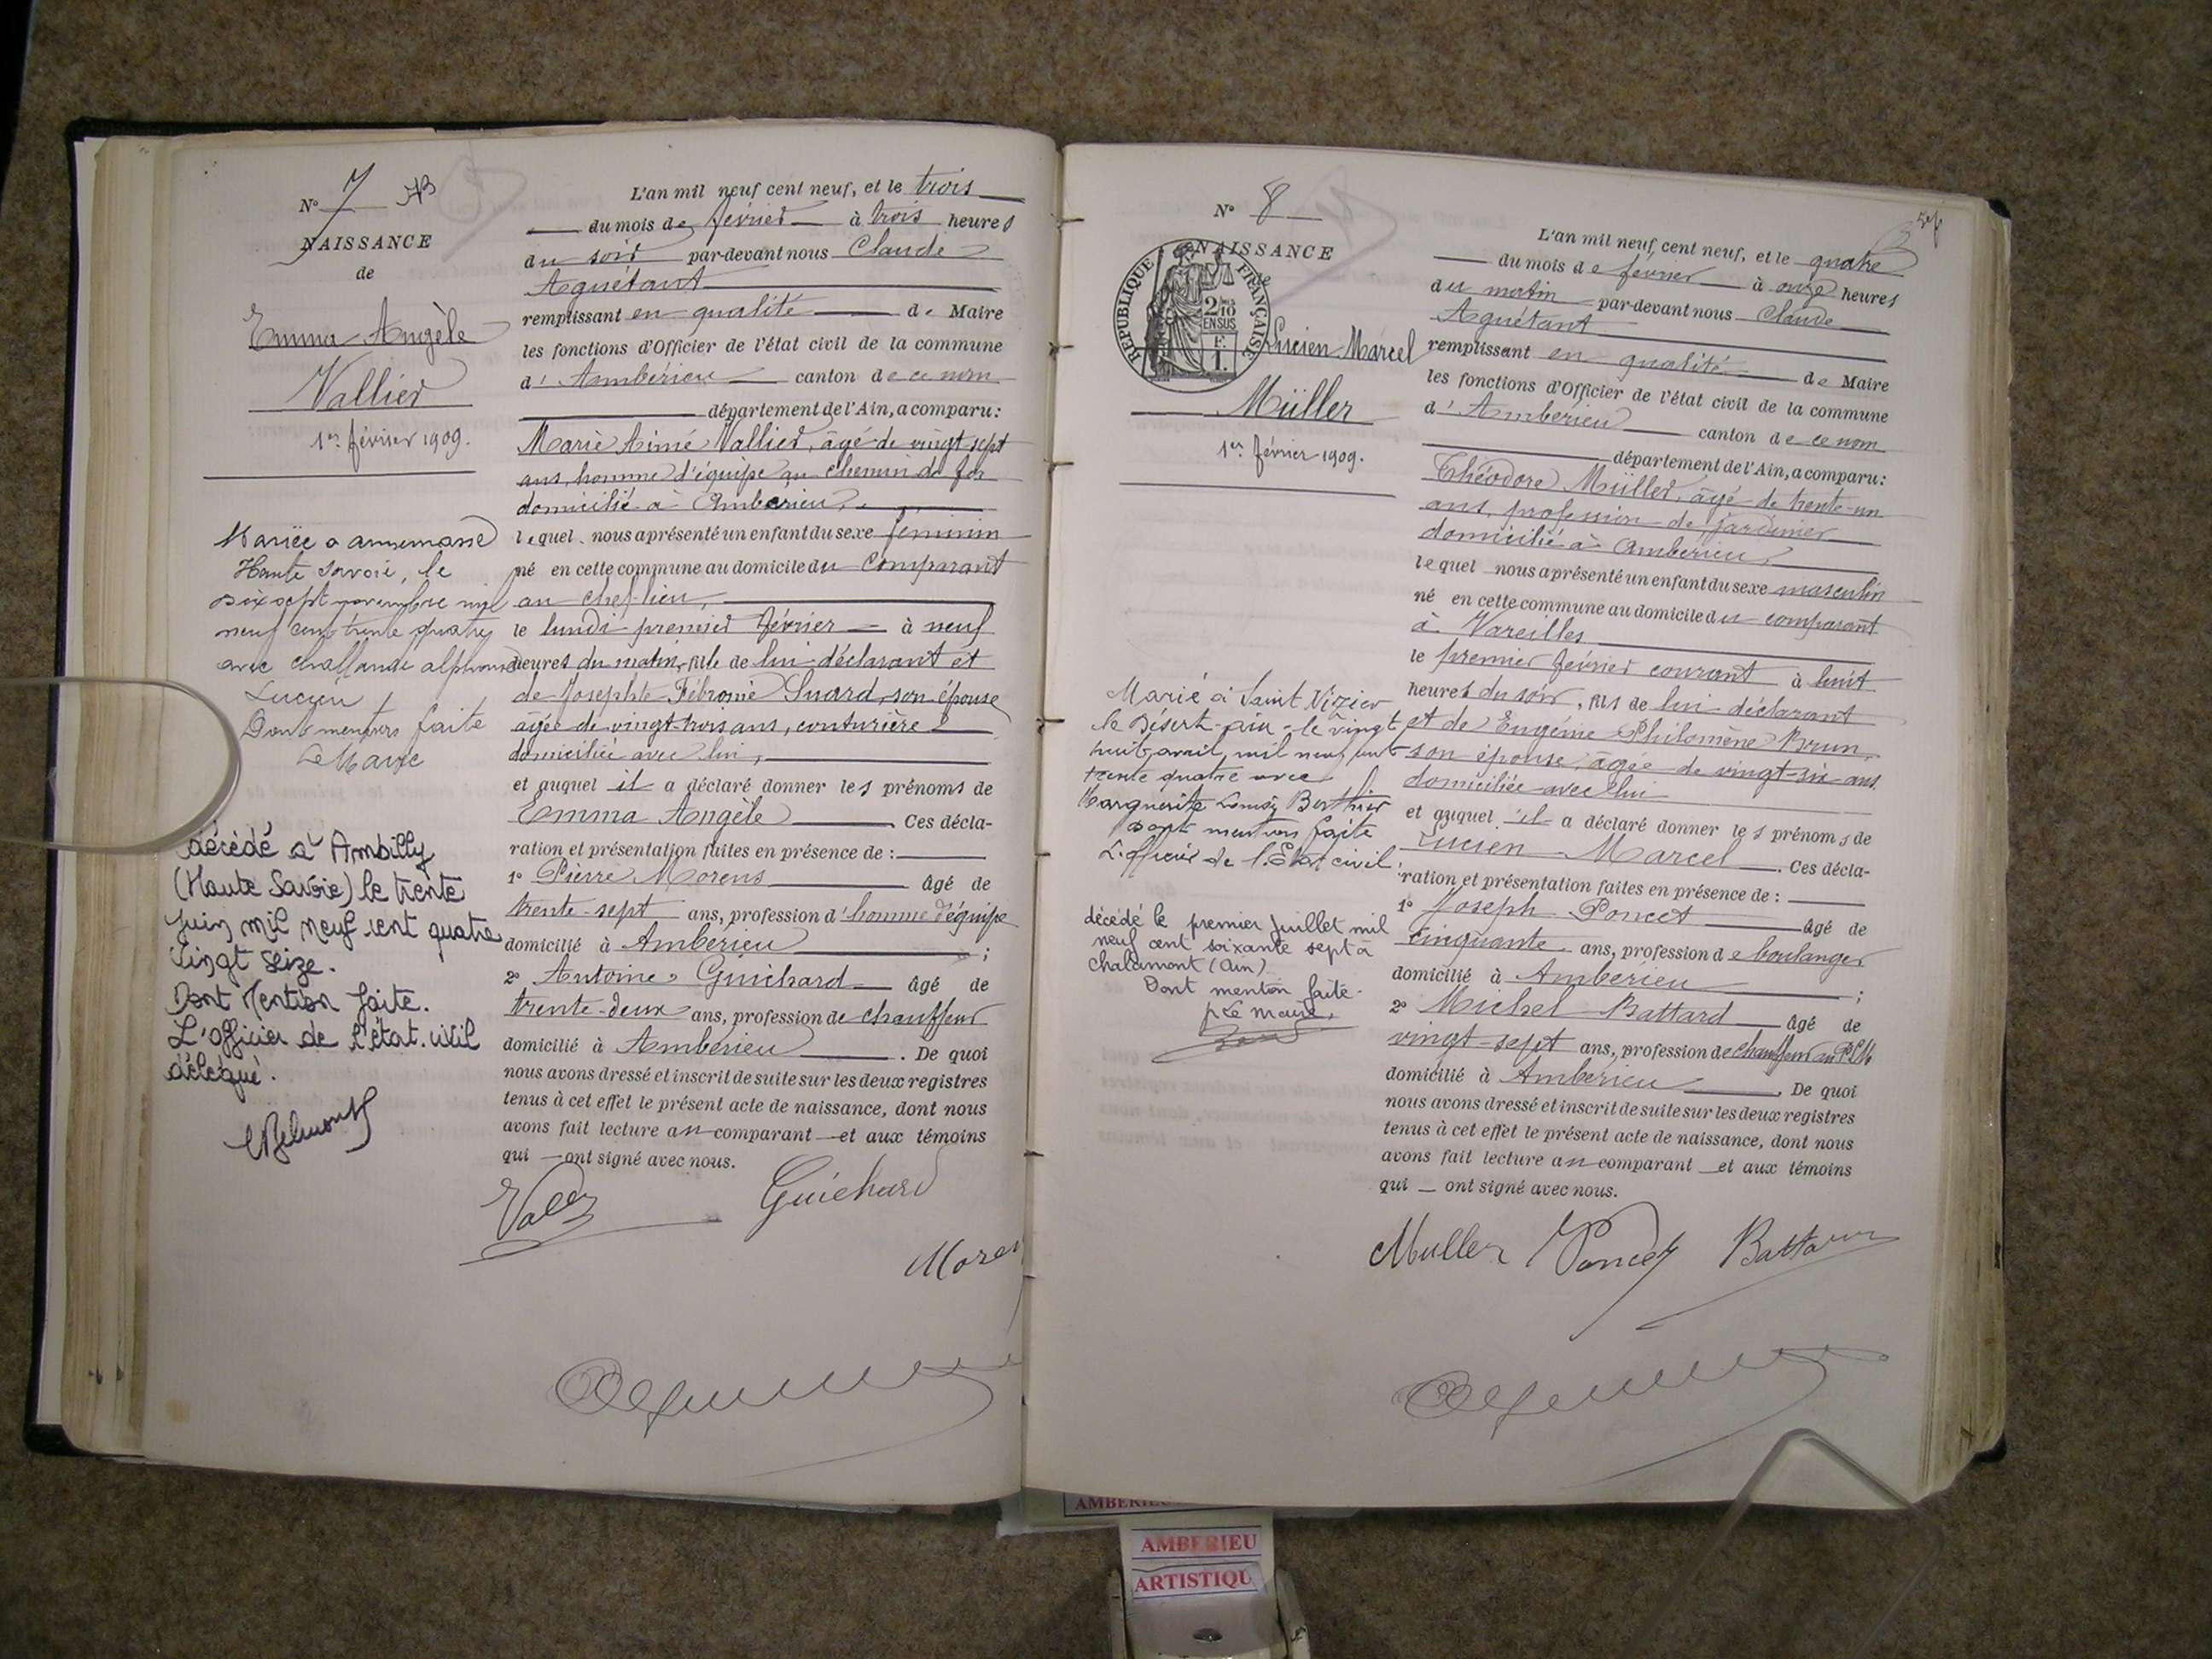 N° 7
NAISSANCE
de
Emma Angèle
Vallier
1er février 1909.
Mariée a annemasse
Haute Savoie, le
dix sept novembre mil
neuf cent trente quatre
avec Challande alphonse
Lucien
Dont mention faite
Le Maire
décédé à Ambilly
(Haute Savoie) le trente
juin mil neuf cent quatre
vingt seize.
Dont Mention faite.
L'officier de l'état civil
délégué.
L'an mil neuf cent neuf, et le trois
du mois de février à trois heures
du soir par-devant nous Claude
Aguétant
remplissant en qualité de Maire
les fonctions d'Officier de l'état civil de la commune
d'Ambérieu canton de ce nom
département de l'Ain, a comparu :
Marie Aimé Vallier, âgé de vingt sept
ans, homme d'équipe au chemin de fer
domicilié à Ambérieu,
lequel nous a présenté un enfant du sexe féminin
né en cette commune au domicile du comparant
au chef-lieu,
le lundi premier février à neuf
heures du matin, fille de lui déclarant et
de Josephte Fébronie Suard, son épouse
âgée de vingt-trois ans, couturière
domiciliée avec lui,
et auquel il a déclaré donner les prénoms de
Emma Angèle Ces décla-
ration et présentation faites en présence de :
1° Pierre Morens âgé de
trente-sept ans, profession d'homme d'équipe
domicilié à Ambérieu ;
2° Antoine Guichard âgé de
trente-deux ans, profession de chauffeur
domicilié à Ambérieu . De quoi
nous avons dressé et inscrit de suite sur les deux registres
tenus à cet effet le présent acte de naissance, dont nous
avons fait lecture au comparant et aux témoins
qui ont signé avec nous.
Guichard
N° 8
NAISSANCE
de
RÉPUBLIQUE FRANÇAISE
2/10
EN SUS
F.
1.
Lucien Marcel
Müller
1er février 1909.
Marié à Saint Nizier
le Désert-ain-le vingt
huit avril mil neuf cent
trente quatre avec
Marguerite Louise Berthier
Dont mention faite
L'officier de l'Etat civil.
décédé le premier juillet mil
neuf cent soixante sept à
Chalamont (Ain)
Dont mention faite.
p Le maire,
L'an mil neuf cent neuf, et le quatre
du mois de février à onze heures
du matin par-devant nous Claude
Aguétant
remplissant en qualité de Maire
les fonctions d'Officier de l'état civil de la commune
d'Ambérieu canton de ce nom
département de l'Ain, a comparu :
Théodore Müller, âgé de trente-un
ans, profession de jardinier
domicilié à Ambérieu,
lequel nous a présenté un enfant du sexe masculin
né en cette commune au domicile du comparant
à Vareilles
le premier février courant à huit
heures du soir, fils de lui déclarant
et de Eugénie Philomène Brun,
son épouse, âgée de vingt-six ans
domiciliée avec lui
et auquel il a déclaré donner les prénoms de
Lucien Marcel . Ces décla-
ration et présentation faites en présence de :
1° Joseph Poncet âgé de
cinquante ans, profession de boulanger
domicilié à Ambérieu ;
2° Michel Battard âgé de
vingt-sept ans, profession de chauffeur au PLM
domicilié à Ambérieu . De quoi
nous avons dressé et inscrit de suite sur les deux registres
tenus à cet effet le présent acte de naissance, dont nous
avons fait lecture au comparant et aux témoins
qui ont signé avec nous.
Muller Poncet Battard
AMBERIEU
AMBERIEU
ARTISTIQU